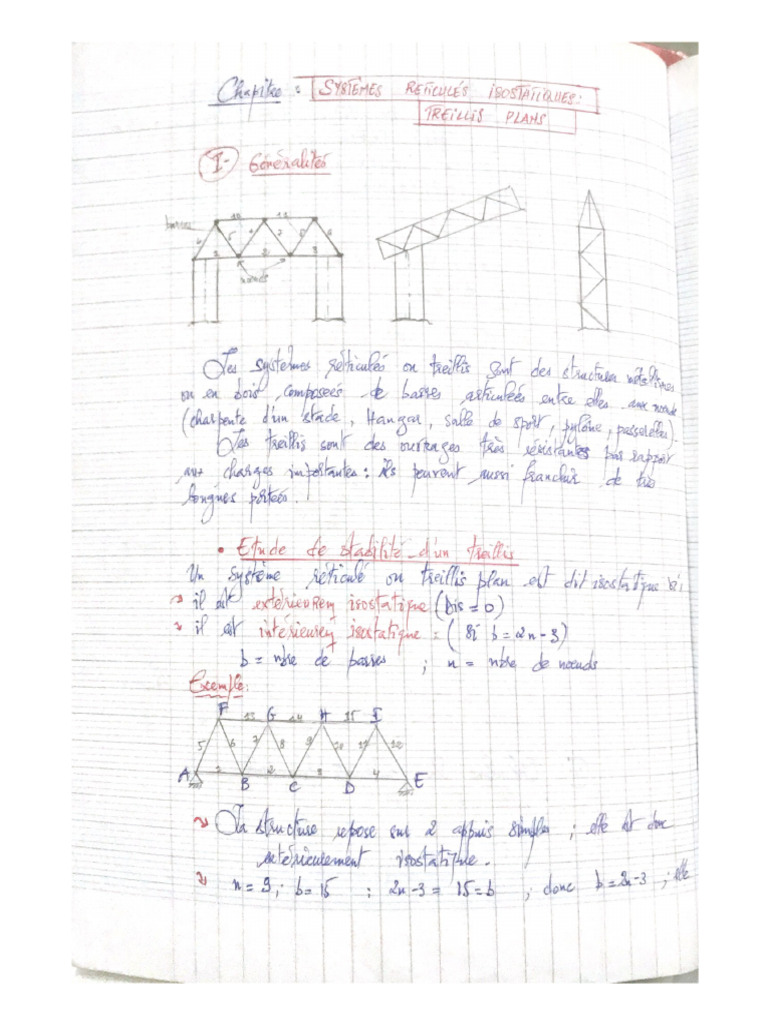 Chapitre : SYSTÈMES RETICULÉS ISOSTATIQUES:
TREILLIS PLANS
I- Généralités
barres
10 11
4 5 6 7 8 9
1 2 3
noeuds
Les systèmes réticulés ou treillis sont des structures métalliques
ou en bois composées de barres articulées entre elles aux noeuds
(charpente d'un stade, Hangar, salle de sport, pylône, passerelles).
Les treillis sont des ouvrages très résistantes par rapport
aux charges importantes : ils peuvent aussi franchir de très
longues portées.
• Etude de stabilité d'un treillis
Un système réticulé ou treillis plan est dit isostatique si;
il est extérieurem isostatique (Dis = 0)
il est intérieurem isostatique = (Si b = 2n-3)
b = nbre de barres ; n = nbre de noeuds
Exemple:
F 13 G 14 H 15 I
5 6 7 8 9 10 11 12
A 1 B 2 C 3 D 4 E
La structure repose sur 2 appuis simples ; elle est donc
extérieurement isostatique.
n = 9 ; b = 15 ; 2n-3 = 15 = b ; donc b = 2n-3 ; elle